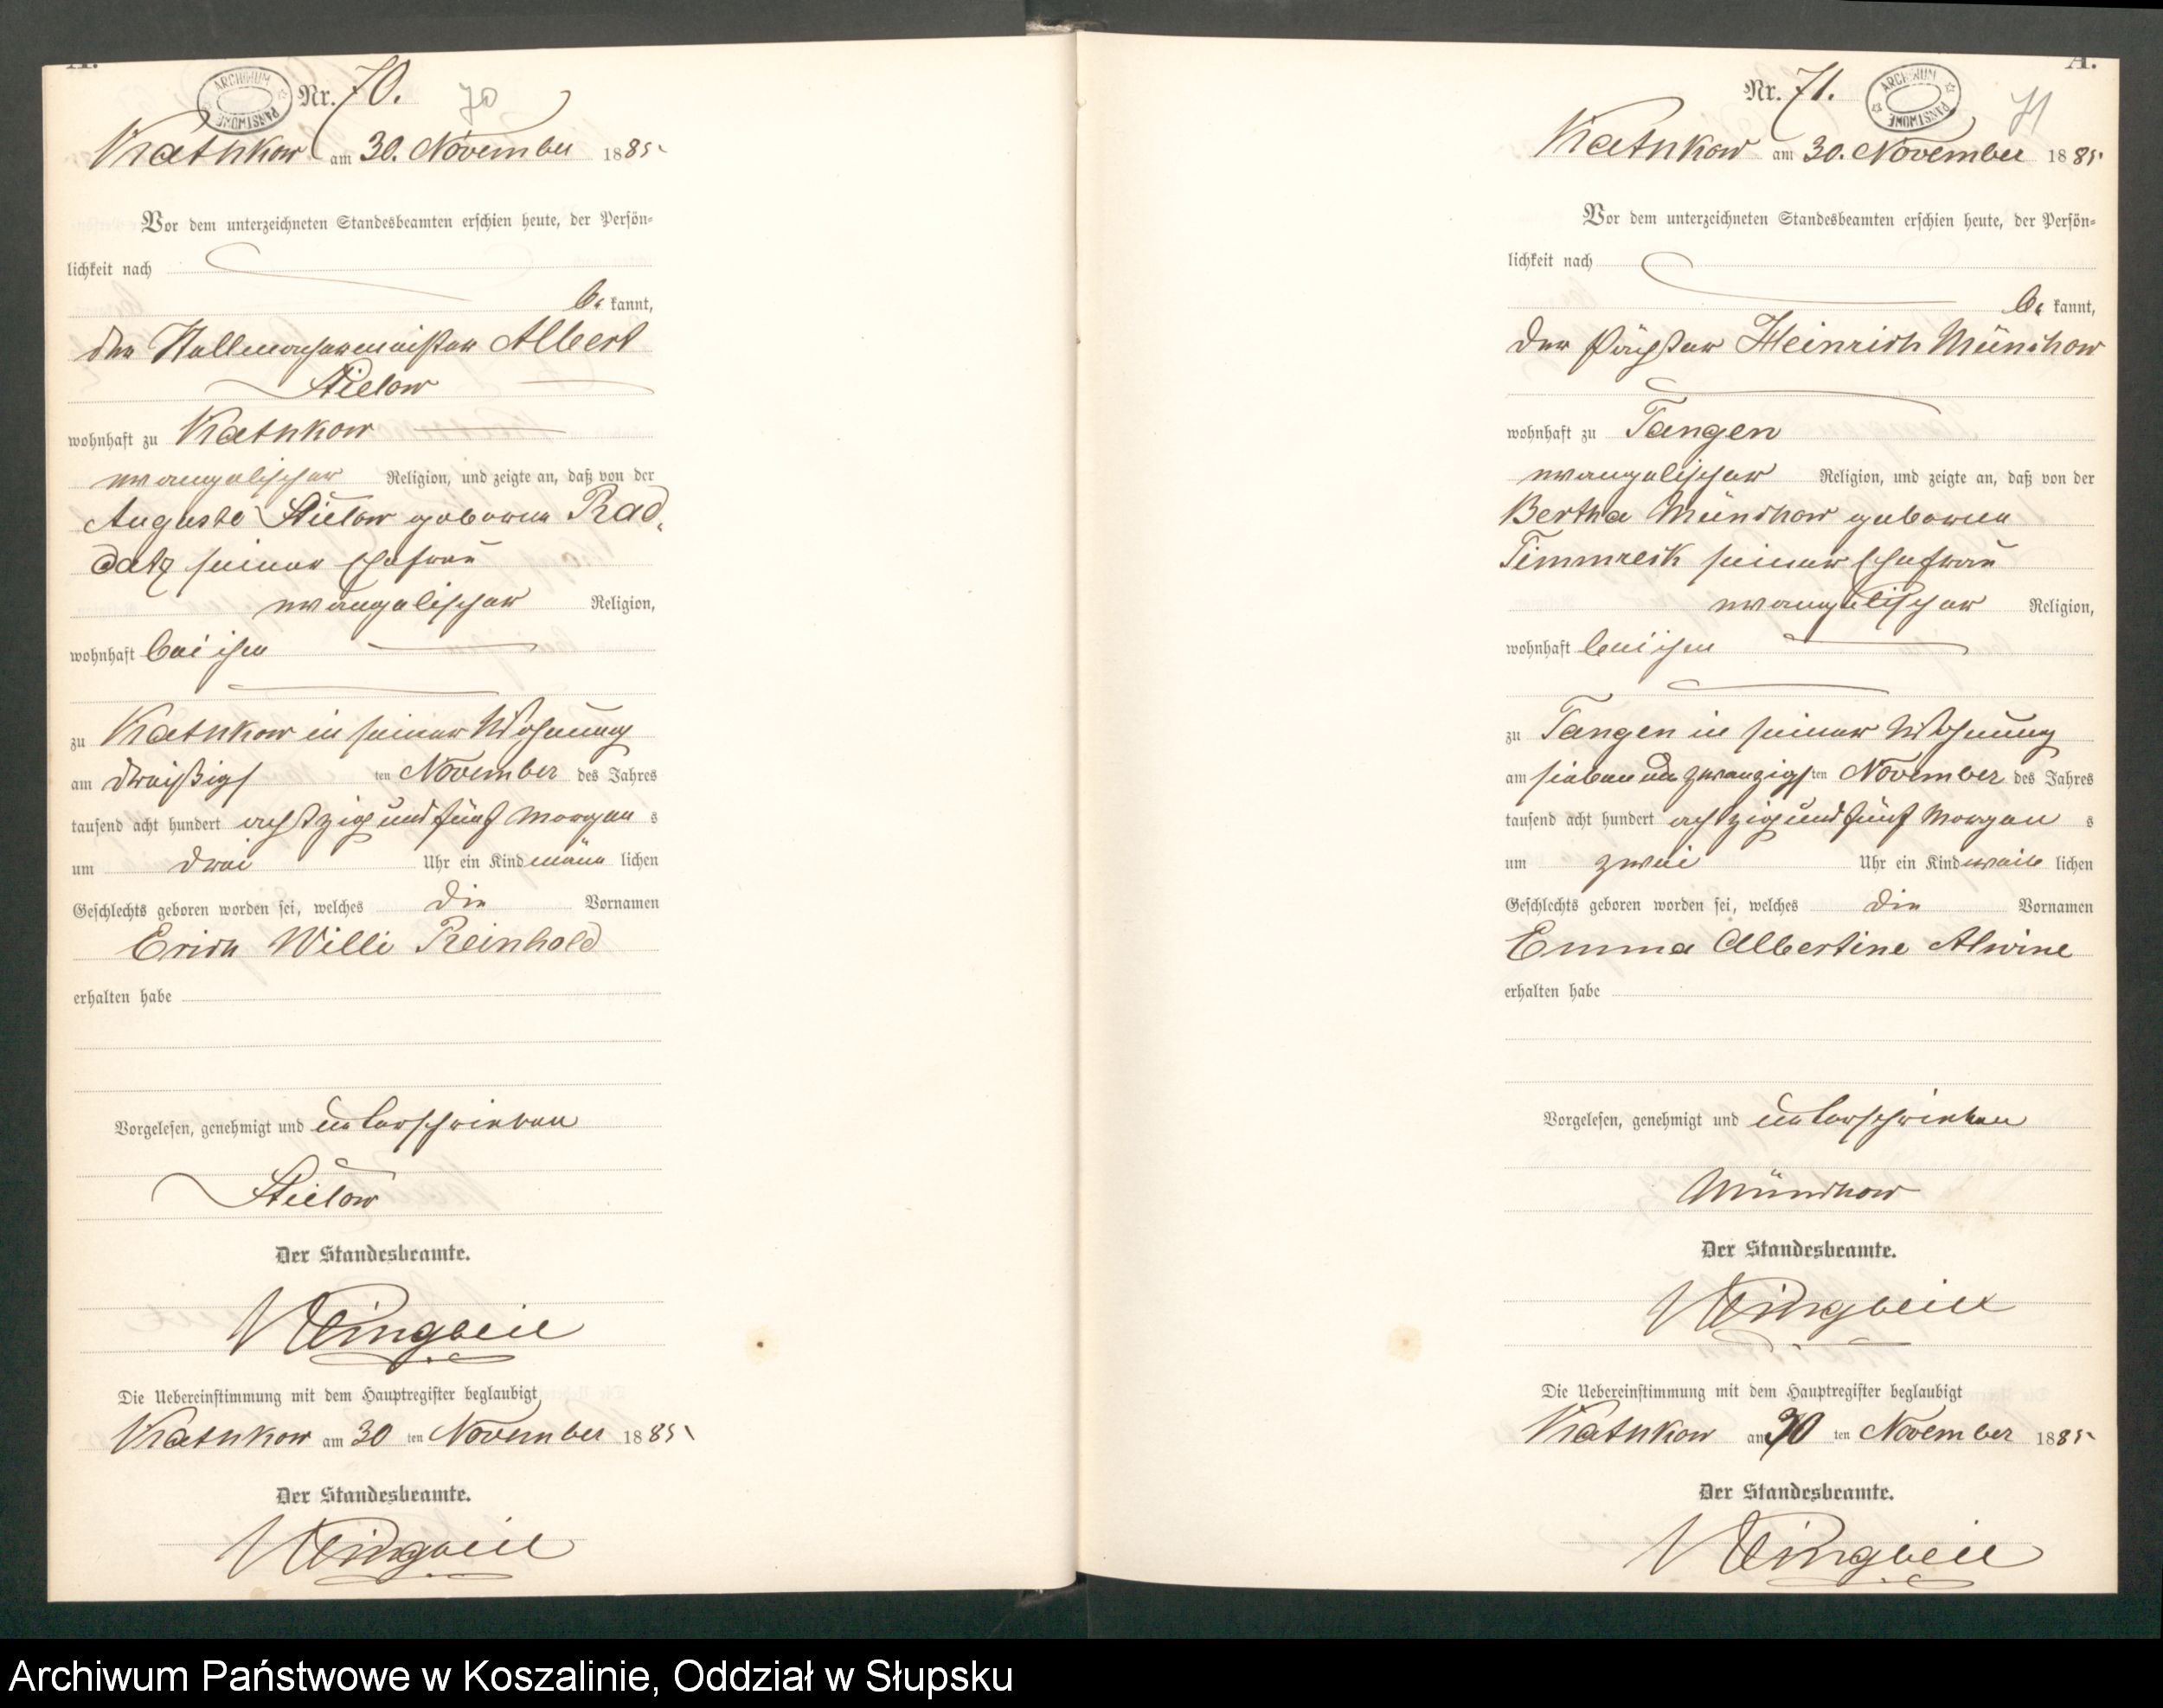 A.
Nr. 70.
70
ARCHIWUM PAŃSTWOWE
Kathkow am 30. November 1885
Vor dem unterzeichneten Standesbeamten erschien heute, der Persön-
lichkeit nach
be kannt,
der Stellmachermeister Albert
Stielow
wohnhaft zu Kathkow
evangelischer Religion, und zeigte an, daß von der
Auguste Stielow geborene Rad-
datz seiner Ehefrau
evangelischer Religion,
wohnhaft bei ihm
zu Kathkow in seiner Wohnung
am dreißigs ten November des Jahres
tausend acht hundert achtzig und fünf Morgen s
um drei Uhr ein Kind männ lichen
Geschlechts geboren worden sei, welches die Vornamen
Erich Willi Reinhold
erhalten habe
Vorgelesen, genehmigt und unterschrieben
Stielow
Der Standesbeamte.
Die Uebereinstimmung mit dem Hauptregister beglaubigt
Kathkow am 30 ten November 1885
Der Standesbeamte.
A.
Nr. 71.
71
ARCHIWUM PAŃSTWOWE
Kathkow am 30. November 1885
Vor dem unterzeichneten Standesbeamten erschien heute, der Persön-
lichkeit nach
be kannt,
der Pächter Heinrich Münchow
wohnhaft zu Tangen
evangelischer Religion, und zeigte an, daß von der
Bertha Münchow geborene
Timmreck seiner Ehefrau
evangelischer Religion,
wohnhaft bei ihm
zu Tangen in seiner Wohnung
am sieben und zwanzigs ten November des Jahres
tausend acht hundert achtzig und fünf Morgen s
um zwei Uhr ein Kind weib lichen
Geschlechts geboren worden sei, welches die Vornamen
Emma Albertine Alwine
erhalten habe
Vorgelesen, genehmigt und unterschrieben
Münchow
Der Standesbeamte.
Die Uebereinstimmung mit dem Hauptregister beglaubigt
Kathkow am 30 ten November 1885
Der Standesbeamte.
Archiwum Państwowe w Koszalinie, Oddział w Słupsku